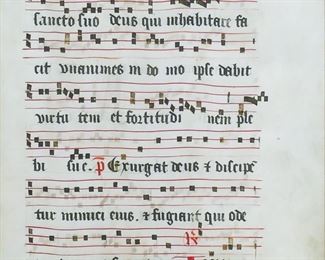 sancto suo deus qui inhabitare fa
cit vnanimes in do mo ipse dabit
virtu tem et fortitudi nem ple
bi sue. p Exurgat deus & discipe
tur inimici eius. & fugiant qui ode
R